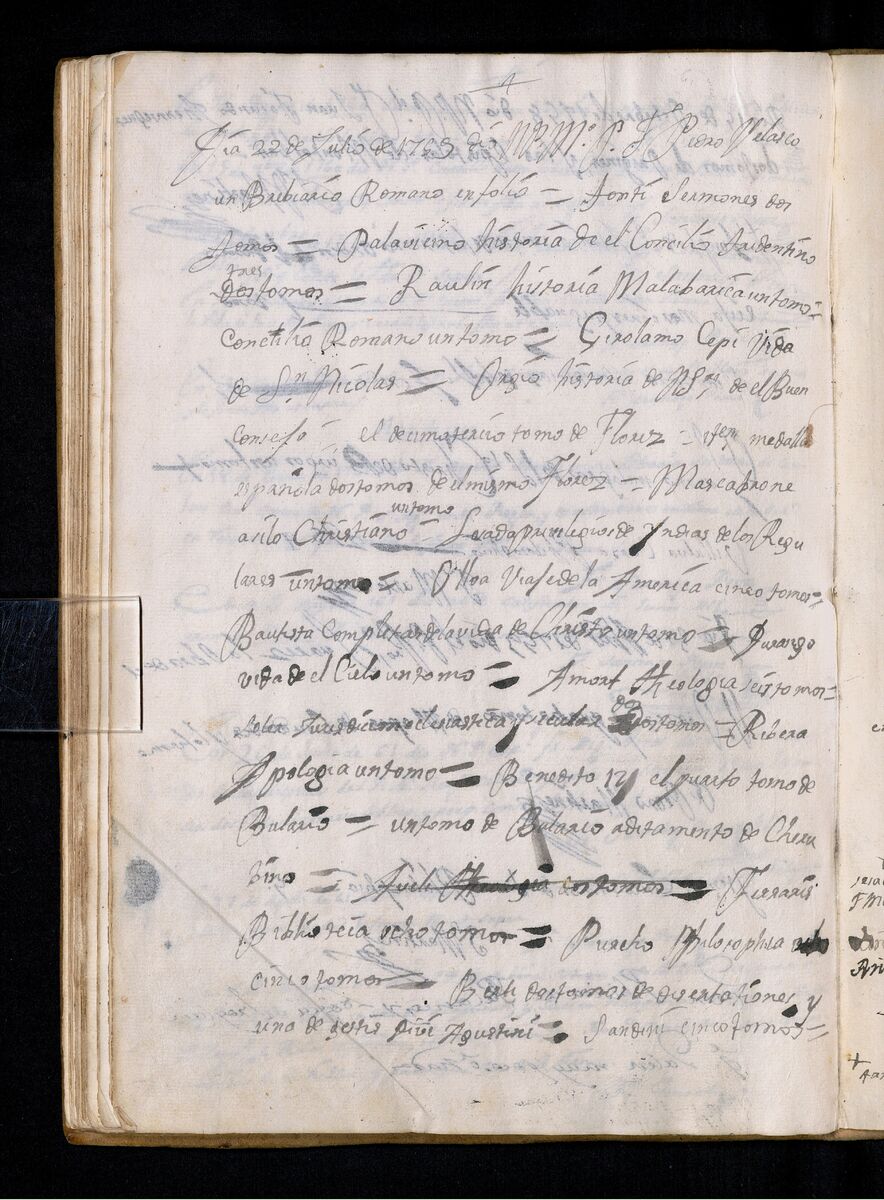 Dia 22 de Julio de 1765 dio N. M. P. F. Pedro Velasco
un Brebiario Romano en folio = Fonti Sermones dos
tomos = Palavicino historia de el Concilio tridentino
tres
dos tomos = Raulin historia Malabarica un tomo =
Concilia Romano un tomo = Girolamo Cepi Vida
de Sn. Nicolas = Orgio historia de N Sra. de el Buen
Consejo = el decimotercio tomo de Florez = item medalla
española dos tomos de el mismo Florez = Mascabrone
un tomo
asilo Christiano = privilegios de Yndias de los Regu
lares un tomo = Ulloa Viaje de la America cinco tomos =
Bautista Completas de la vida de Christo un tomo = Durango
vida de el Cielo un tomo = Amort theologia seis tomos =
dos
eclesiastica y secular dos tomos = Ribera
Apologia un tomo = Benedito 14 el quarto tomo de
Bulario = un tomo de Bulario aditamento de Cheru
bino = Theologia tomos = Ferraris
Bibliotecia ocho tomos = Purcho Philosophia
cinco tomos = Berti dos tomos de disertationes y
uno de gestis Divi Agustini = Sandini cinco tomos =